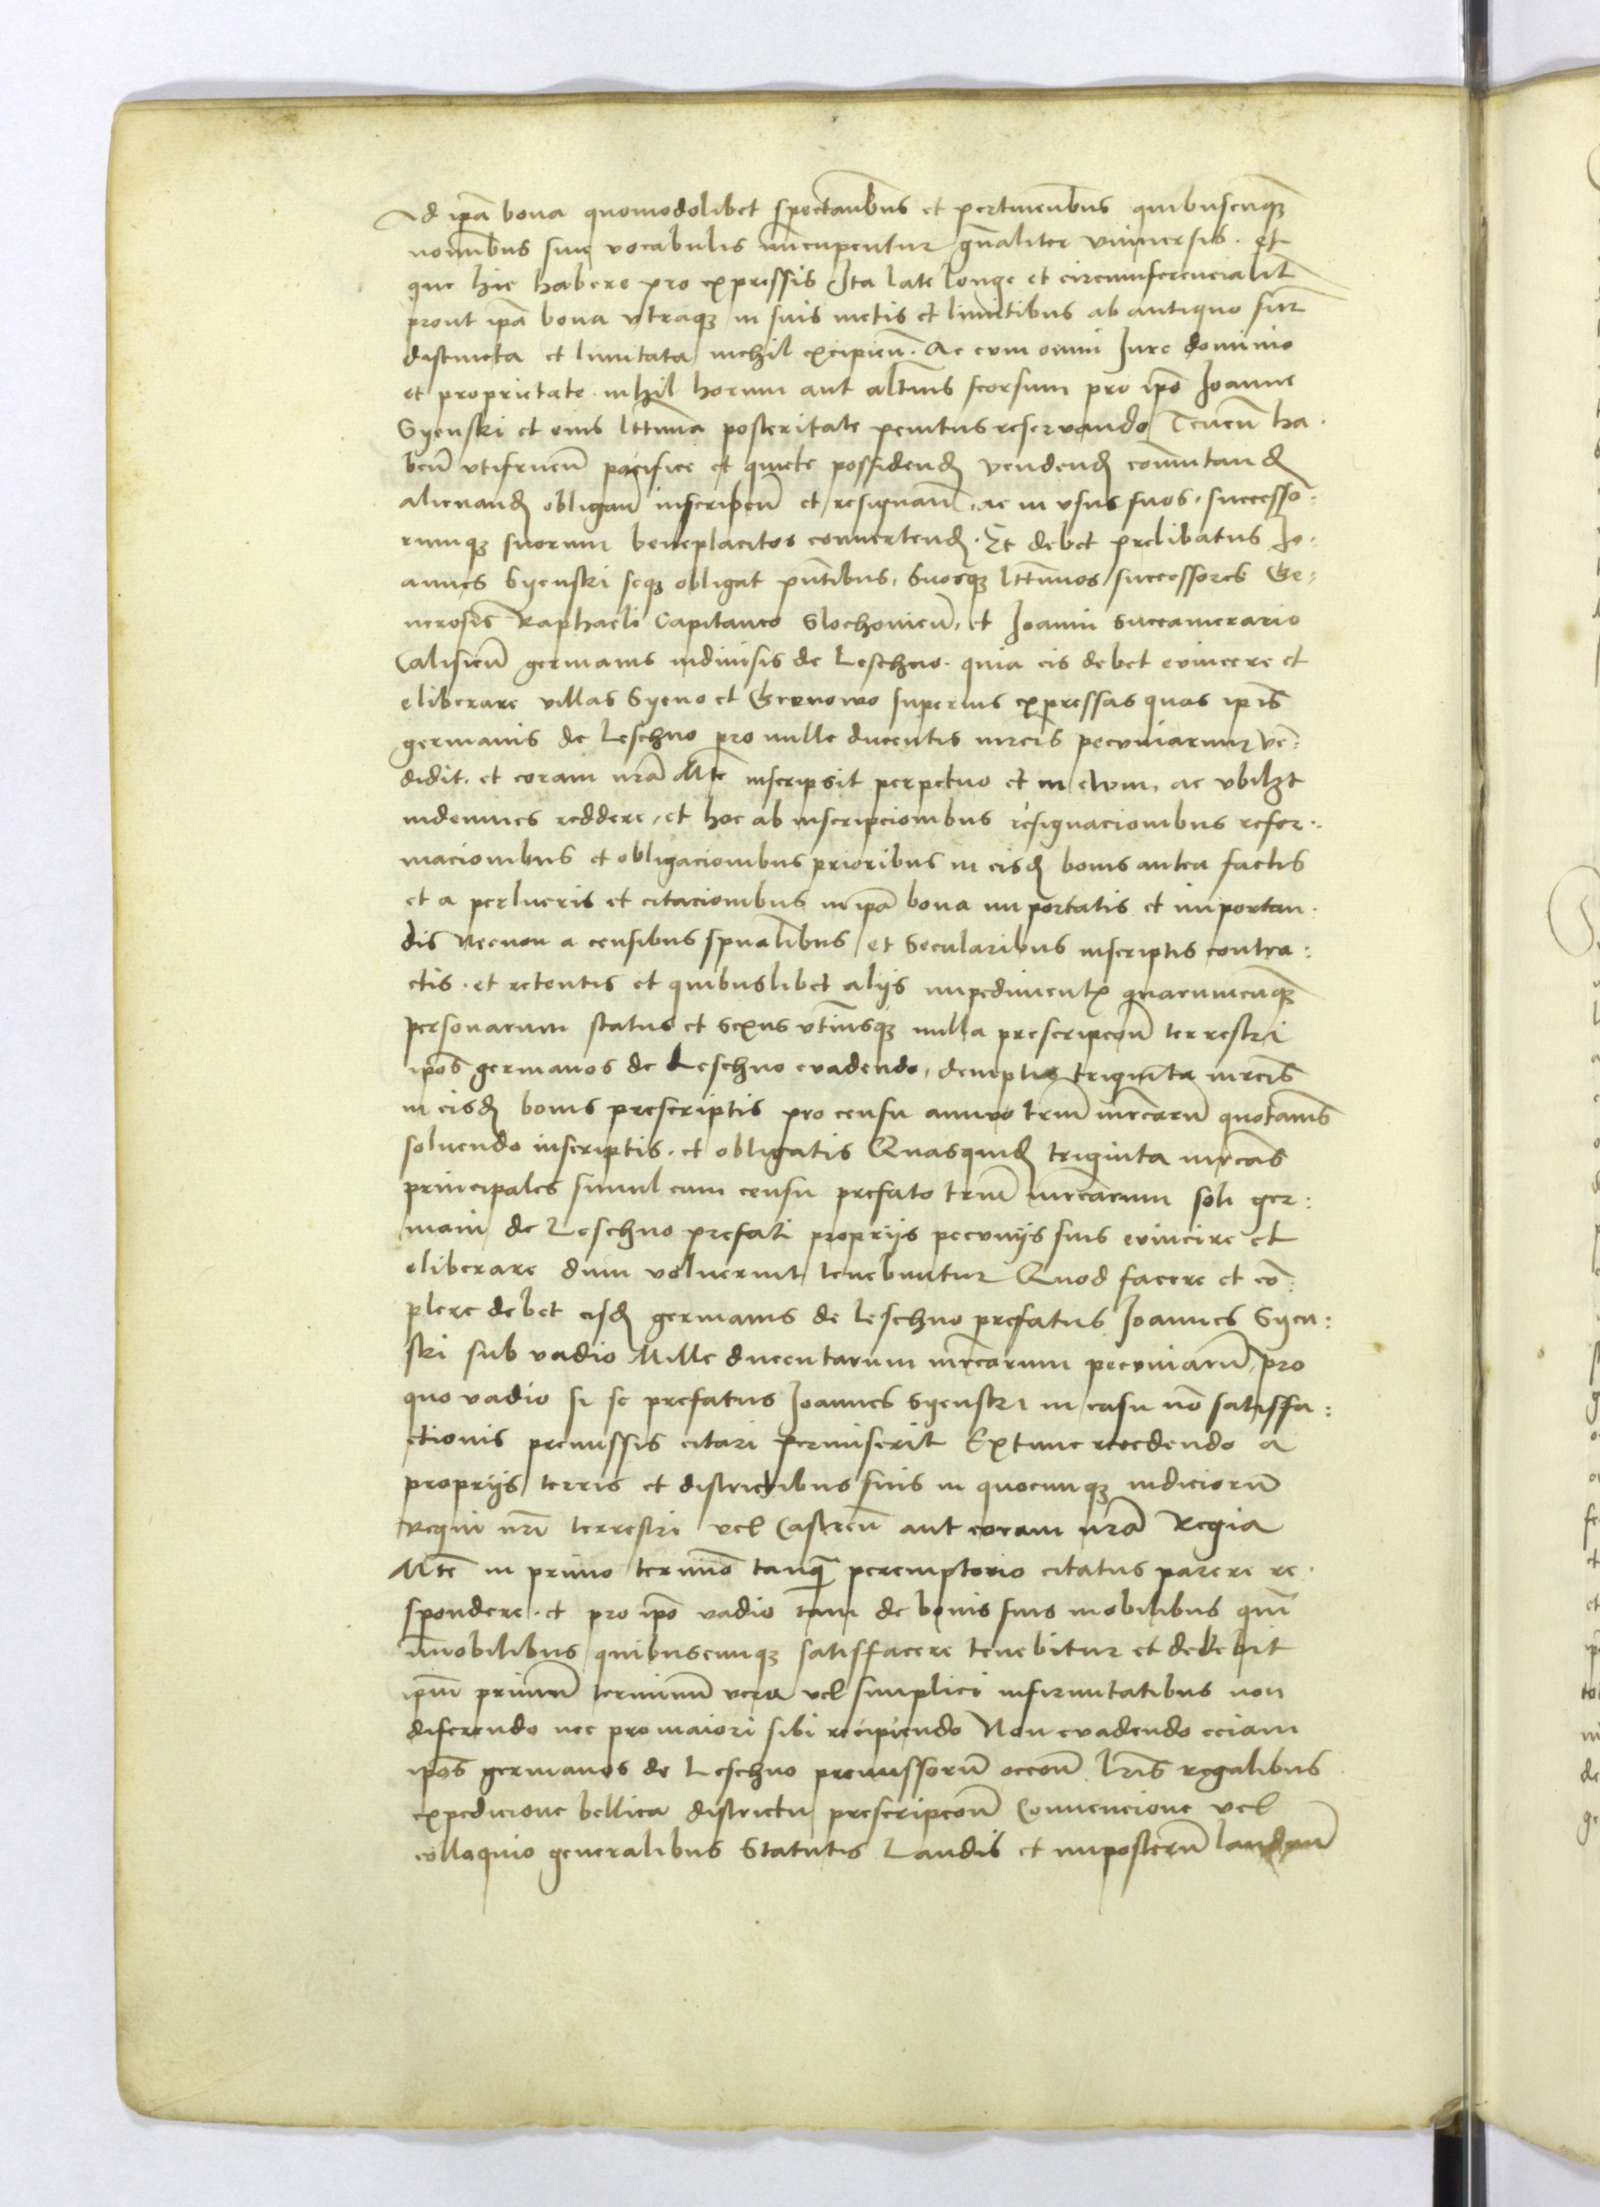 Ad ip̄a bona quomodolibet spectan̄bus et pertinen̄bus quibuscumqȝ
nomībus siue vocabulis nūcupentur gn̄aliter vniuersis. et
que hic habere pro expressis Ita late longe et circumferencialit̄
prout ip̄a bona vtraqȝ in suis metis et limitibus ab antiquo sūt
distincta et limitata nichil excipien̄. Ac cum omni Iure dominio
et proprietate. nihil horum aut alt̄ius seorsum pro ip̄o Joanne
Syenski et eius l̄ttima posteritate penitus reseruando Tenen̄ ha.
ben̄ vtifruen̄ pacifice et quiete possidend̄ vendend̄ com̄utand̄
alienand̄ obligan̄ inscriben̄ et resignan̄. ac in vsus suos. successo:
rumqȝ suorum beneplacitos conuertend̄. Et debet prelibatus Jo:
annes Syenski seqȝ obligat pn̄tibus, Suosqȝ l̄ttimos successores Ge:
nerosis Raphaeli Capitaneo Slochouien̄, et Joanni Succamerario
Calisien̄ germanis indiuisis de Leschno. quia eis debet euincere et
eliberare villas Syeno et Gronowo superius expressas quas ip̄is
germanis de Leschno pro mille ducentis mrcis pecuniarum ve:
didit. et coram nr̄a M̄te inscripsit perpetuo et in ewm, ac vbilȝt
indemnes reddere, et hoc ab inscripcionibus resignacionibus refor.
macionibus et obligacionibus prioribus in eisd̄ bonis antea factis
et a perlucris et citacionibus in ip̄a bona importatis et importan.
dis Necnon a censibus sp̄ualibus et Secularibus inscriptis contra:
ctis. et retentis et quibuslibet alijs impedimentꝭ quarumcumqȝ
personarum status et sexus vtriusqȝ nulla prescripcōe terrestri
ip̄os germanos de Leschno euadendo, demptis triginta mrcis
in eisd̄ bonis prescriptis pro censu annuo triū mrcarū quotan̄is
soluendo inscriptis. et obligatis Quasquid̄ triginta mrcas
principales simul cum censu prefato triū mrcarum soli ger:
mani de Leschno prefati proprijs pecunijs suis euincire et
eliberare dum voluerint tenebuntur Quod facere et cō:
plere debet eisd̄ germanis de Leschno prefatus Joannes Syen:
ski sub vadio Mille ducentarum mrcarum pecuniarū, pro
quo vadio si se prefatus Joannes Syenski in casu nō satisfa:
ctionis premissis citari permiserit Extunc recedendo a
proprijs terris et districtibus suis in quocunqȝ iudiciorū
Regni nr̄i terrestri vel Castren̄ aut coram nr̄a Regia
M̄te in primo termino tanq̄ȝ peremptorio citatus parere re.
spondere. et pro ip̄o vadio tam de bonis suis mobilibus qm̄
īmobilibus quibuscunqȝ satisfacere tenebitur et debebit
ip̄m primū terminū vera vel simplici infirmitatibus non
diferendo nec pro maiori sibi recipiendo Non euadendo eciam
ip̄os germanos de Leschno premissorū occōe l̄ris regalibus
expedicione bellica districtu prescripcōe Conuencione vel
colloquio generalibus Statutis Laudis et imposterū laudan̄